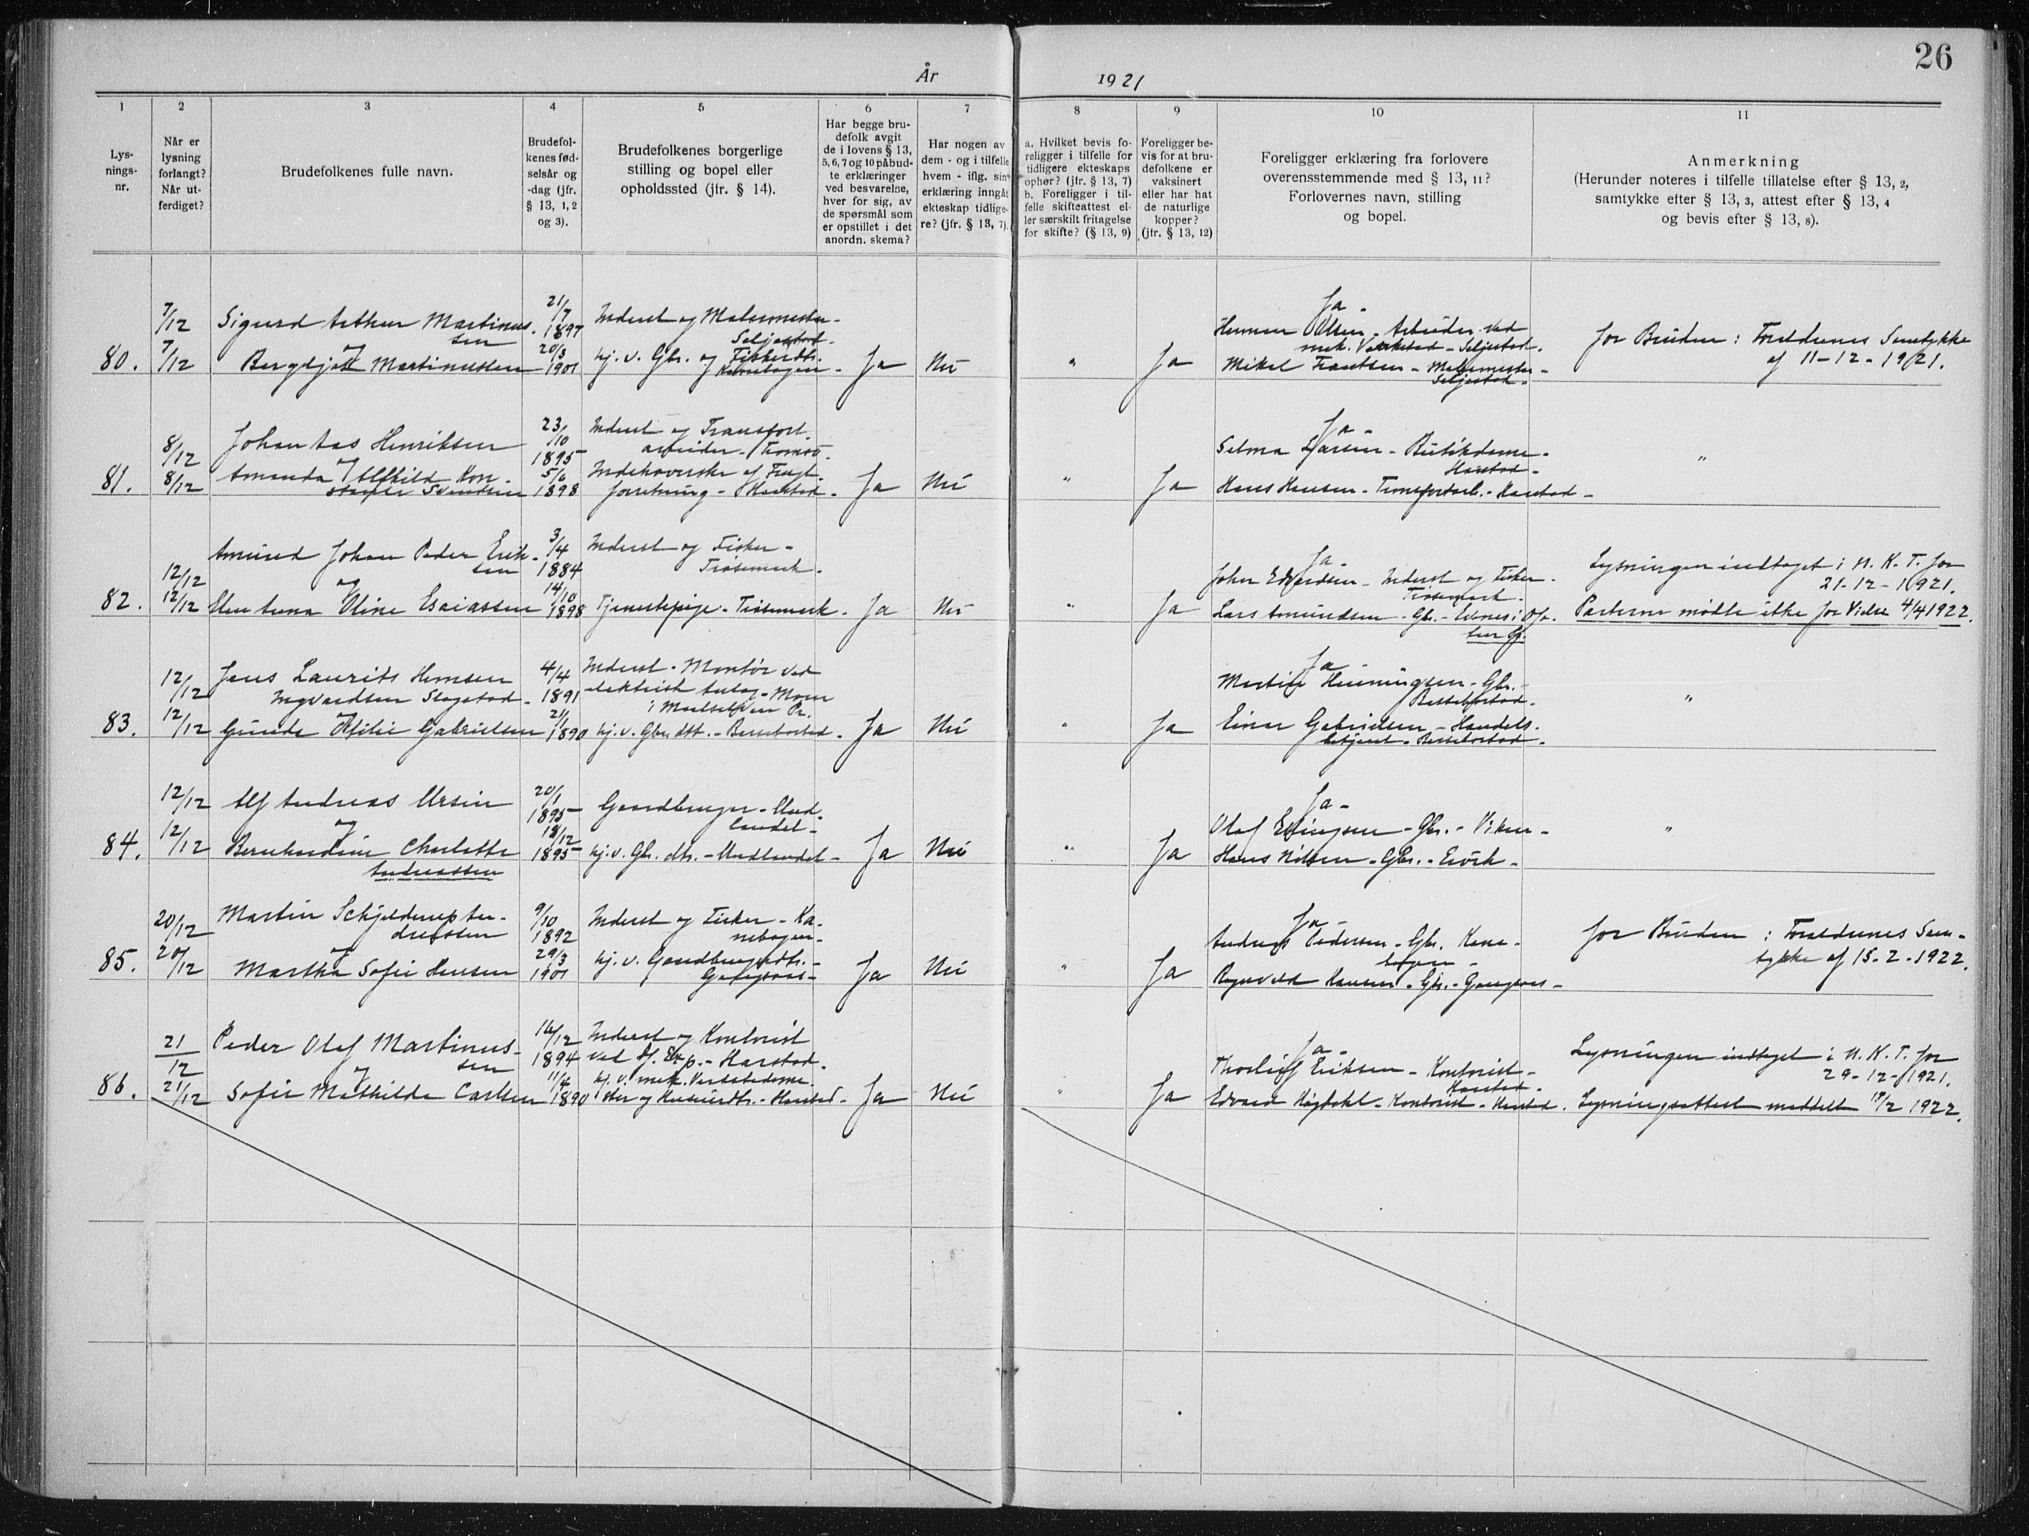 26
År 1921
1 2 3 4 5 6 7 8 9 10 11
Lys-
nings-
nr.
Når er
lysning
forlangt?
Når ut-
ferdiget?
Brudefolkenes fulle navn.
Brudefol-
kenes fød-
selsår og
-dag (jfr.
§ 13, 1, 2
og 3).
Brudefolkenes borgerlige
stilling og bopel eller
opholdssted (jfr. § 14).
Har begge bru-
defolk avgit
de i lovens § 13,
5, 6, 7 og 10 påbud-
te erklæringer
ved besvarelse,
hver for sig, av
de spørsmål som
er opstillet i det
anordn. skema?
Har nogen av
dem - og i tilfelle
hvem - iflg. sin
erklæring inngåt
ekteskap tidlige-
re? (jfr. § 13, 7).
a. Hvilket bevis fo-
religger i tilfelle for
tidligere ekteskaps
ophør? (jfr. § 13, 7)
b. Foreligger i til-
felle skifteattest el-
ler særskilt fritagelse
for skifte? (§ 13, 9)
Foreligger be-
vis for at bru-
defolkene er
vaksinert
eller har hat
de naturlige
kopper?
(jfr. § 13, 12)
Foreligger erklæring fra forlovere
overensstemmende med § 13, 11?
Forlovernes navn, stilling
og bopel.
Anmerkning
(Herunder noteres i tilfelle tillatelse efter § 13, 2,
samtykke efter § 13, 3, attest efter § 13, 4
og bevis efter § 13, 8).
80.
7/12
7/12
Sigurd Arthur Martinus-
sen
og
Bergljot Martinussen
21/7
1897
20/3
1901
Inderst og Malermester -
Seljestad -
hj. v. Gbr. og Fiskerdtr.
Kanebogen -
Ja
Nei
"
Ja
Ja -
Olsen - Arbeider ved
mek. Verksted - Seljestad.
Mikal Frantsen - Malermester -
Seljestad -
for Bruden: Foreldrenes Samtykke
af 11-12-1921.
81.
8/12
8/12
Johan Aas Henriksen
og
Amanda Alfhild Kon-
stanse Svendsen
23/10
1895
5/6
1898
Inderst og Transport-
arbeider - Tromsø -
Indehaverske af Frugt-
forretning - Harstad -
Ja
Nei
"
Ja
Ja -
Selma Larsen - Butikdame -
Harstad -
Hans Hansen - Transportarb. - Harstad -
"
82.
12/12
12/12
Amund Johan Peder Erik-
sen
og
Elen Anna Oline Esaiassen
3/4
1884
14/10
1898
Inderst og Fisker -
Trøsemark.
Tjenestepige - Trøsemark.
Ja
Nei
"
Ja
Ja -
John Edvardsen - Inderst og Fisker -
Trøsemark.
Lars Amundsen - Gbr. - Evenes i Ofo-
ten
Lysningen indtaget i N. K. T. for
21-12-1921.
Parterne mødte ikke for Vielse 4/4 1922.
83.
12/12
12/12
Jens Laurits Hemsen
Ingvardsen Slagstad.
og
Gunda Ofilie Gabrielsen
4/4
1891
21/1
1890
Inderst - Montør ved
elektrisk Anlæg - Moen
i Maalselven Pr.
hj. v. Gbr. dtr. - Bessebostad.
Ja
Nei
"
Ja
Ja
Martin Henningsen - Gbr. -
Bessebostad -
Einar Gabrielsen - Handels-
betjent - Bessebostad.
"
84.
12/12
12/12
Alf Andreas Ursin
og
Bernhardine Charlotte
Andreassen
20/1
1895
18/12
1895
Gaardbruger - Und-
landet -
hj. v. Gbr. dtr. - Undlandet -
Ja
Nei
"
Ja
Ja -
Olaf Edvingsen - Gbr. - Viken -
Hans Nilsen - Gbr. -
"
85.
20/12
20/12
Martin Schjelderup An-
dreassen
og
Martha Sofie Hansen
9/10
1892
29/3
1901
Inderst og Fisker - Ka-
nebogen -
hj. v. Gaardbrugerdtr. -
Gangsaas -
Ja
Nei
"
Ja
Ja
Andreas Pedersen - Gbr. Kane-
bogen -
Ragnvald Hansen - Gbr. - Gangsaas -
for Bruden: Foreldrenes Sam-
tykke af 15-2-1922.
86.
21/12
21/12
Peder Olaf Martinus-
sen
og
Sofie Mathilde Carlsen
16/12
1894
11/4
1890
Inderst og Kontorist
ved Exp. - Harstad.
hj. v. mek. Verkstedsme-
ster og Huseierdtr. - Harstad -
Ja
Nei
"
Ja
Ja -
Thorleif Eriksen - Kontorist -
Harstad -
Edvard Høgdahl - Kontorist - Harstad.
Lysningen indtaget i N. K. T. for
29-12-1921.
Lysningsattest meddelt 17/2 1922.